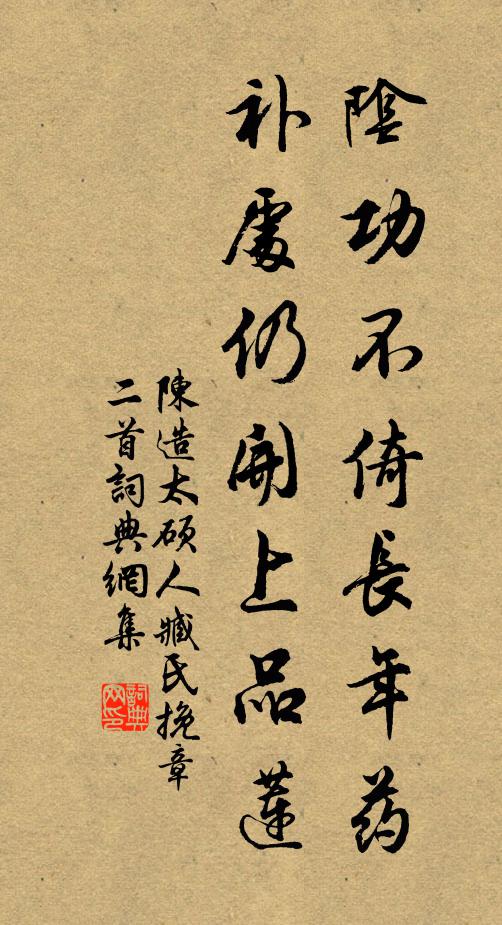 陰功不倚長年药
补處仍開上品蓮
陳造太碩人臧氏挽章
二首詞典網集
詞典网印